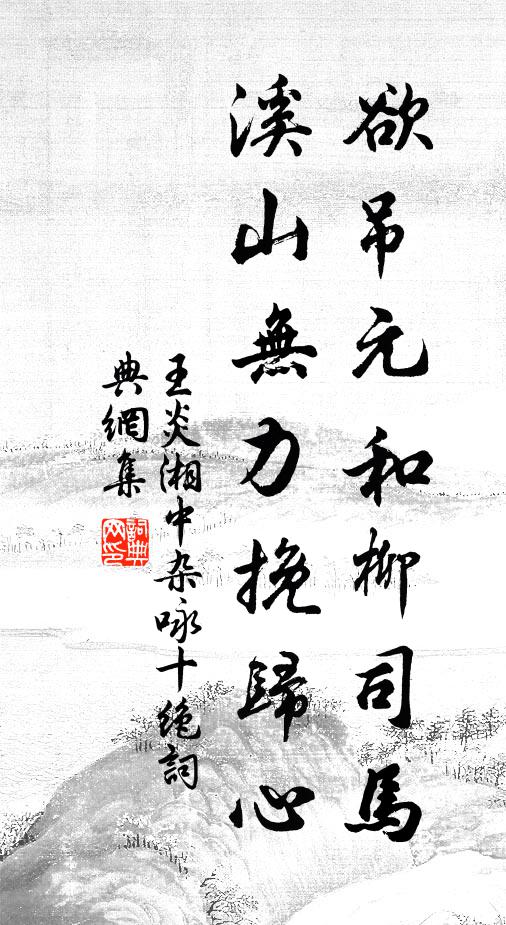 欲吊元和柳司馬
溪山無力挽歸心
王炎湘中杂咏十絶詞
典網集
詞典
网印